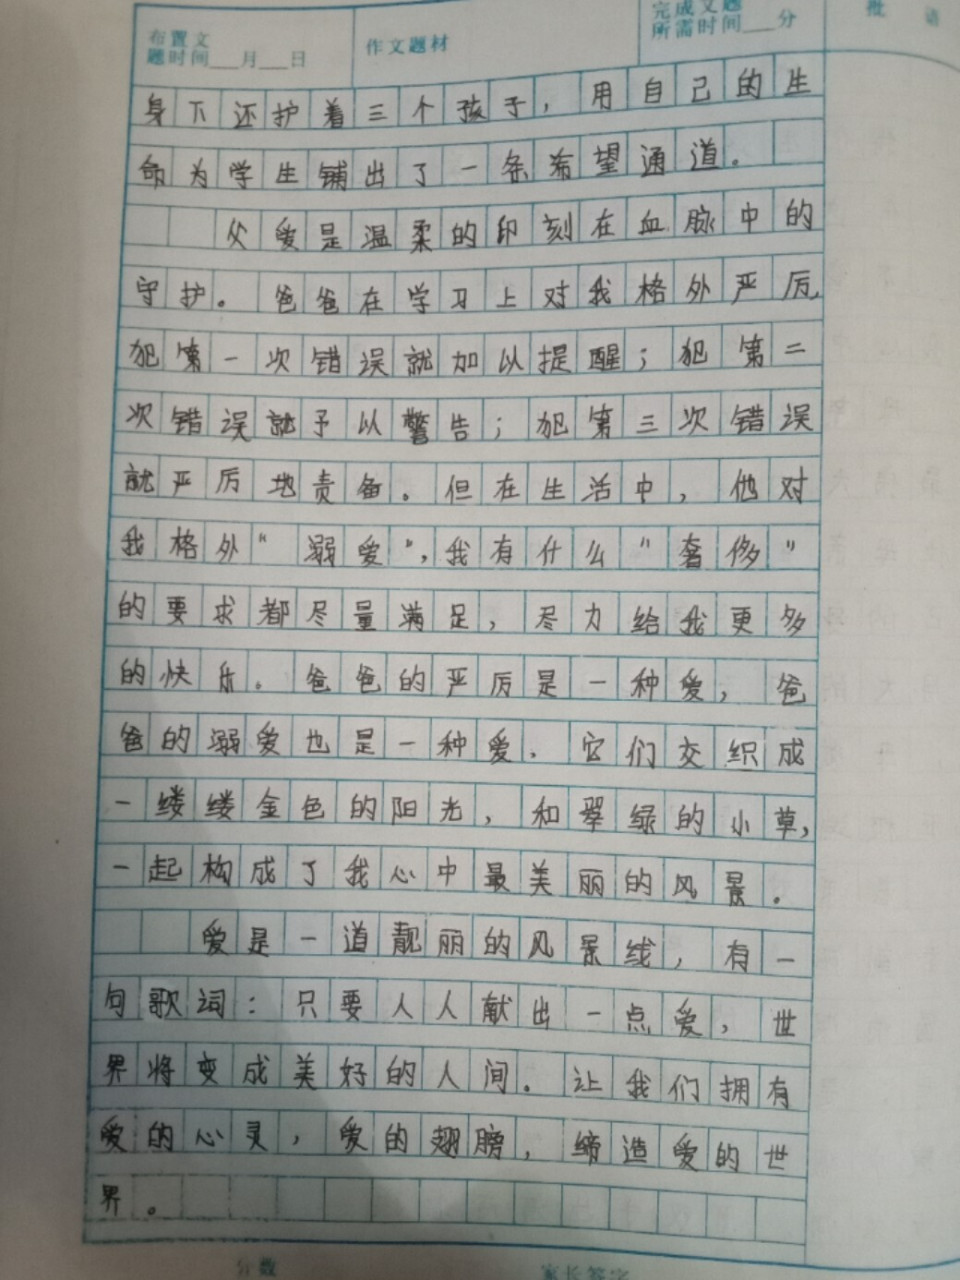 布置文
题时间___月___日
作文题材
完成文题
所需时间___分
批 语
身下还护着三个孩子，用自己的生
命为学生铺出了一条希望通道。
父爱是温柔的印刻在血脉中的
守护。爸爸在学习上对我格外严厉，
犯第一次错误就加以提醒；犯第二
次错误就予以警告；犯第三次错误
就严厉地责备。但在生活中，他对
我格外“溺爱”，我有什么“奢侈”
的要求都尽量满足，尽力给我更多
的快乐。爸爸的严厉是一种爱，爸
爸的溺爱也是一种爱。它们交织成
一缕缕金色的阳光，和翠绿的小草，
一起构成了我心中最美丽的风景。
爱是一道靓丽的风景线，有一
句歌词：只要人人献出一点爱，世
界将变成美好的人间。让我们拥有
爱的心灵，爱的翅膀，缔造爱的世
界。
分数
家长签字